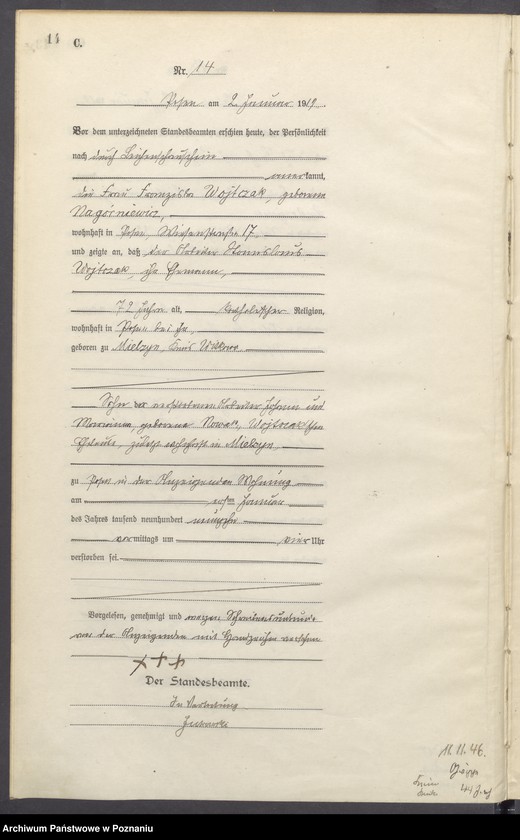 14 C.
Nr. 14
Posen am 2. Januar 1919.
Vor dem unterzeichneten Standesbeamten erschien heute, der Persönlichkeit
nach durch Leichenschauschein
anerkannt,
die Frau Franziska Wojtczak, geborene
Nagórniewicz,
wohnhaft in Posen, Wiesenstraße 17,
und zeigte an, daß der Arbeiter Stanislaus
Wojtczak, ihr Ehemann,
72 Jahre alt, katholischer Religion,
wohnhaft in Posen bei ihr,
geboren zu Mielzyn, Kreis Witkowo
Sohn der verstorbenen Arbeiter Johann und
Marianna, geborene Nowak, Wojtczak'schen
Eheleute, zuletzt wohnhaft in Mielzyn,
zu Posen in der Anzeigenden Wohnung
am ersten Januar
des Jahres tausend neunhundert neunzehn
vormittags um vier Uhr
verstorben sei.
Vorgelesen, genehmigt und wegen Schreibensunkunde
von der Anzeigenden mit Handzeichen versehen
+++
Der Standesbeamte.
In Vertretung
11.11.46.
Archiwum Państwowe w Poznaniu